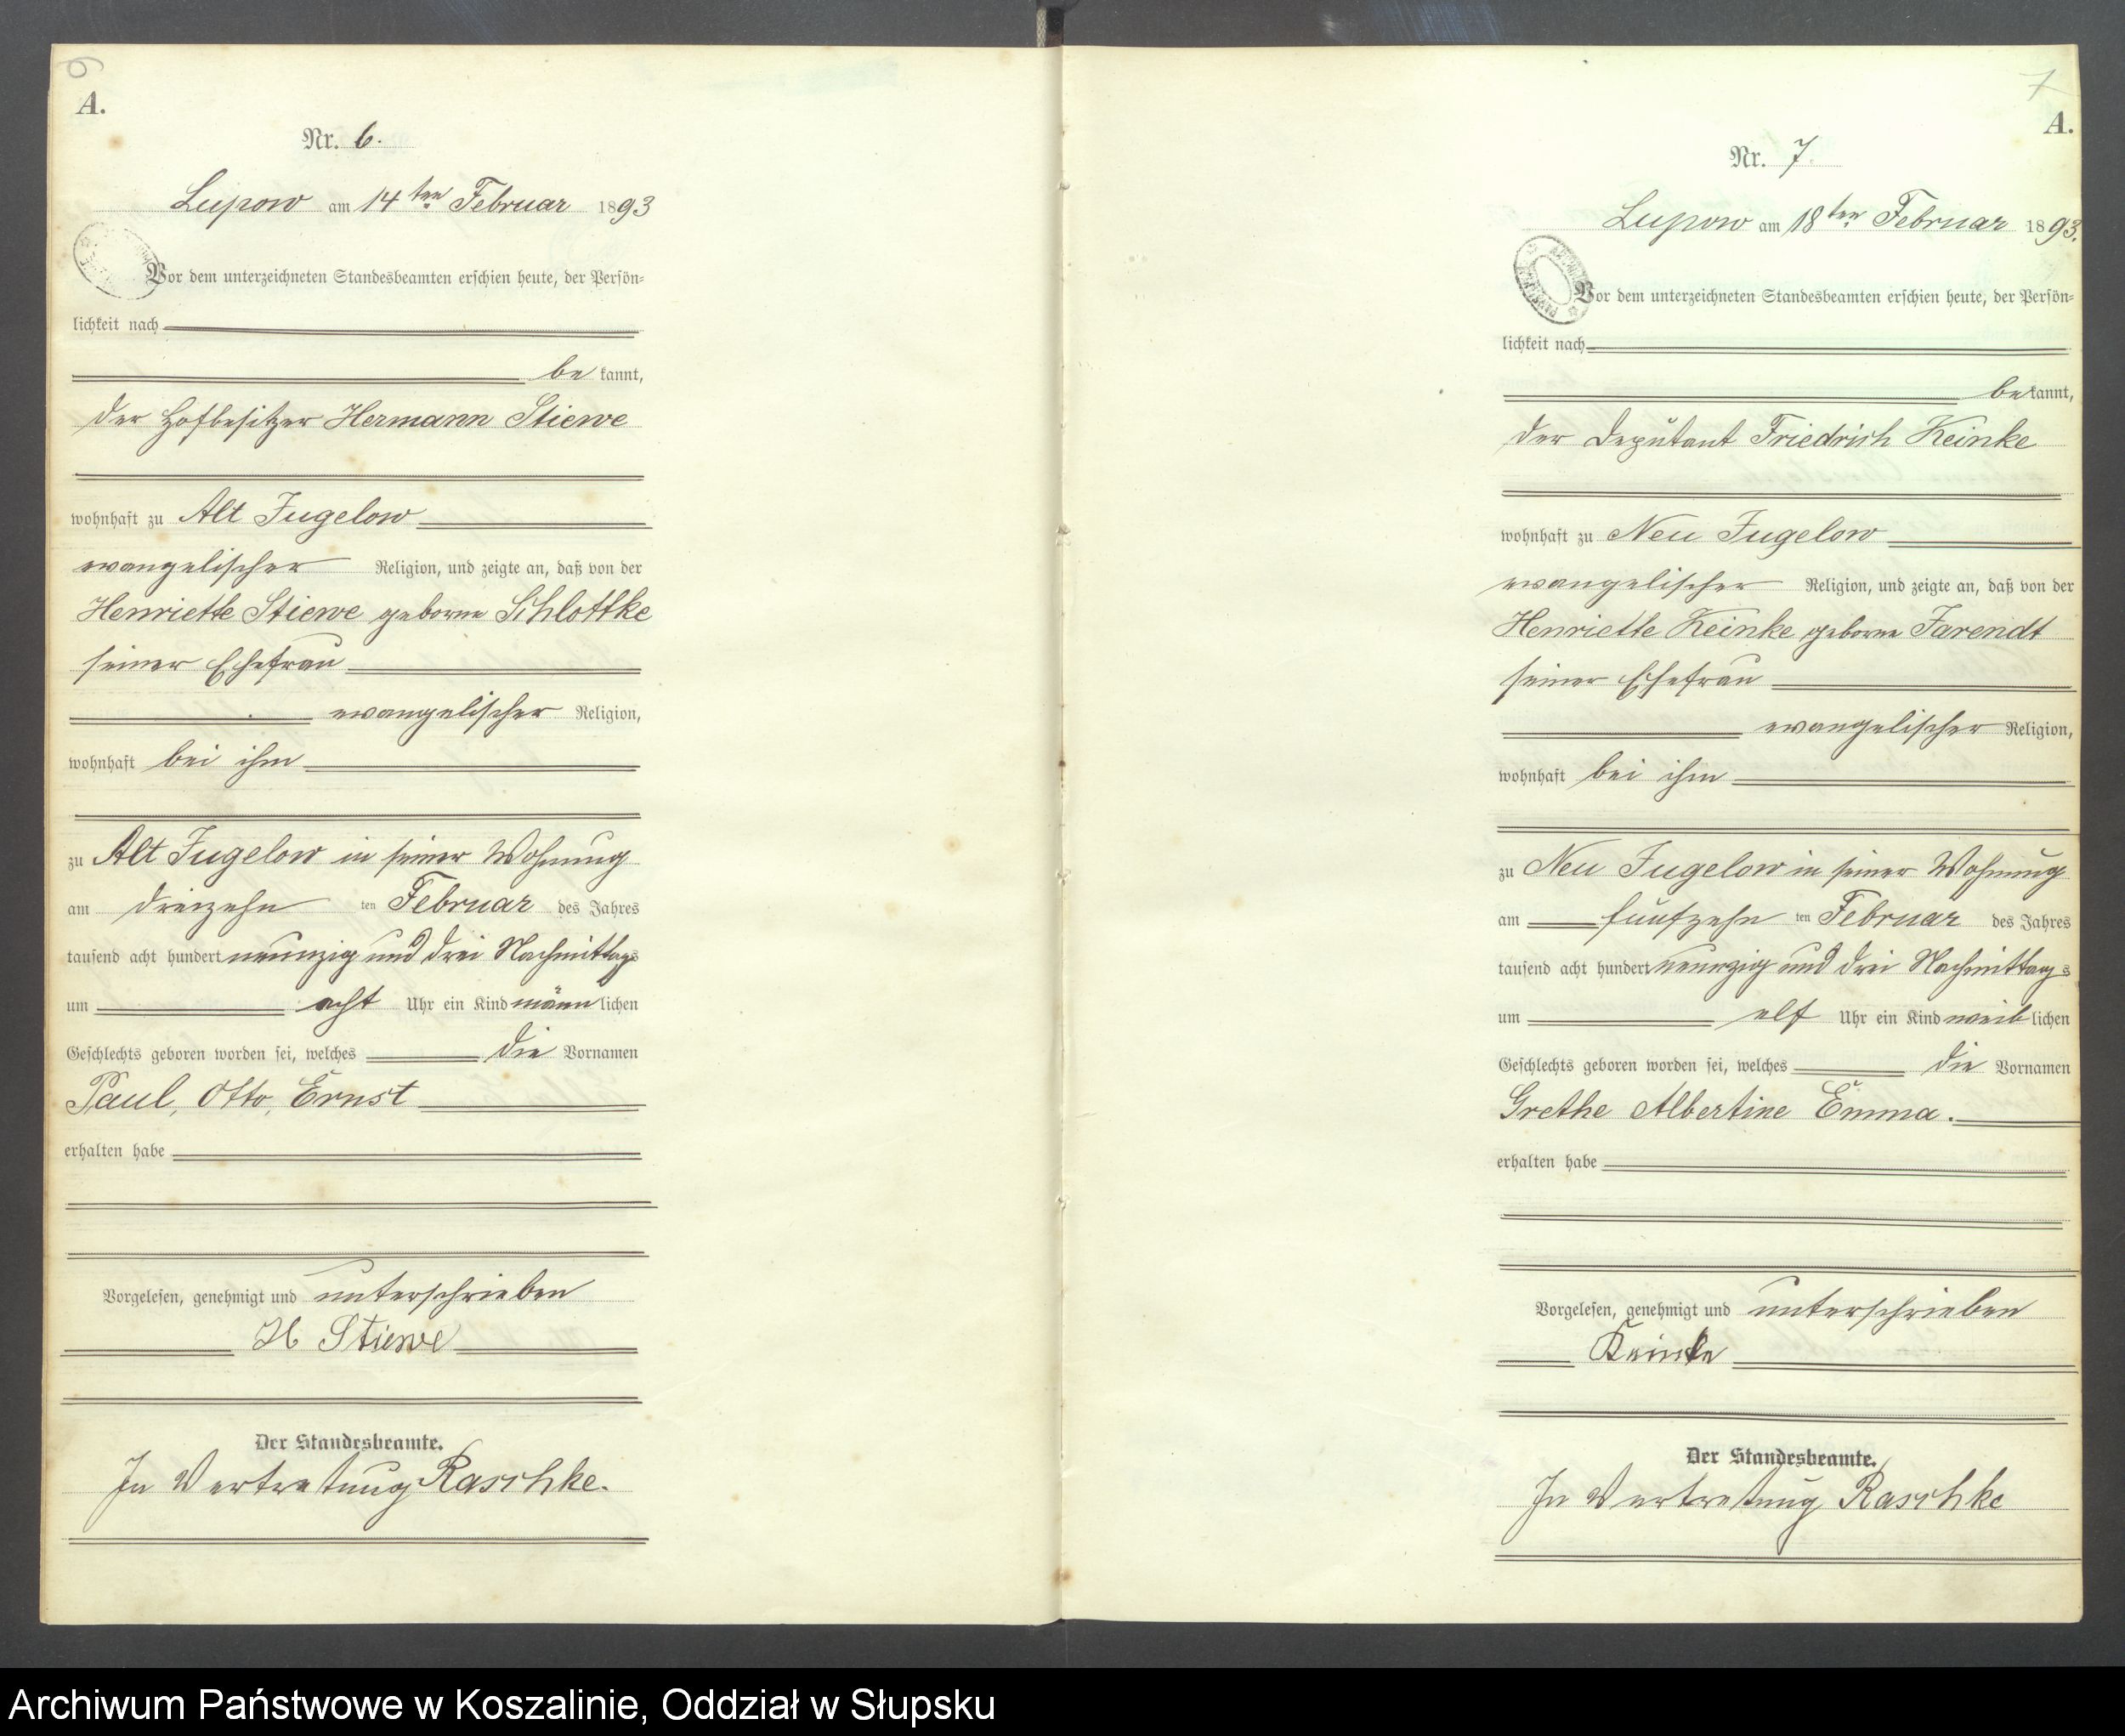 6
A.
Nr. 6.
Lupow am 14ten Februar 1893
Vor dem unterzeichneten Standesbeamten erschien heute, der Persön-
lichkeit nach
be kannt,
der Hofbesitzer Hermann Stiewe
wohnhaft zu Alt Jugelow
evangelischer Religion, und zeigte an, daß von der
Henriette Stiewe geborne Schlottke
seiner Ehefrau
evangelischer Religion,
wohnhaft bei ihm
zu Alt Jugelow in seiner Wohnung
am dreizehn ten Februar des Jahres
tausend acht hundert neunzig und drei Nachmittags
um acht Uhr ein Kind männ lichen
Geschlechts geboren worden sei, welches die Vornamen
Paul, Otto, Ernst
erhalten habe
Vorgelesen, genehmigt und unterschrieben
H Stiewe
Der Standesbeamte.
In Vertretung Raschke.
7
A.
Nr. 7.
Lupow am 18ten Februar 1893.
Vor dem unterzeichneten Standesbeamten erschien heute, der Persön-
lichkeit nach
be kannt,
der Deputant Friedrich Keinke
wohnhaft zu Neu Jugelow
evangelischer Religion, und zeigte an, daß von der
Henriette Keinke geborne Jarendt
seiner Ehefrau
evangelischer Religion,
wohnhaft bei ihm
zu Neu Jugelow in seiner Wohnung
am fünfzehn ten Februar des Jahres
tausend acht hundert neunzig und drei Nachmittags
um elf Uhr ein Kind weib lichen
Geschlechts geboren worden sei, welches die Vornamen
Grethe Albertine Emma.
erhalten habe
Vorgelesen, genehmigt und unterschrieben
Keinke
Der Standesbeamte.
In Vertretung Raschke
Archiwum Państwowe w Koszalinie, Oddział w Słupsku